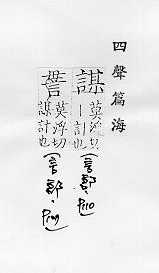 四聲篇海
謀
莫浮切
丨計也
(言部、P110)
莫浮切
謀計也
(言部、